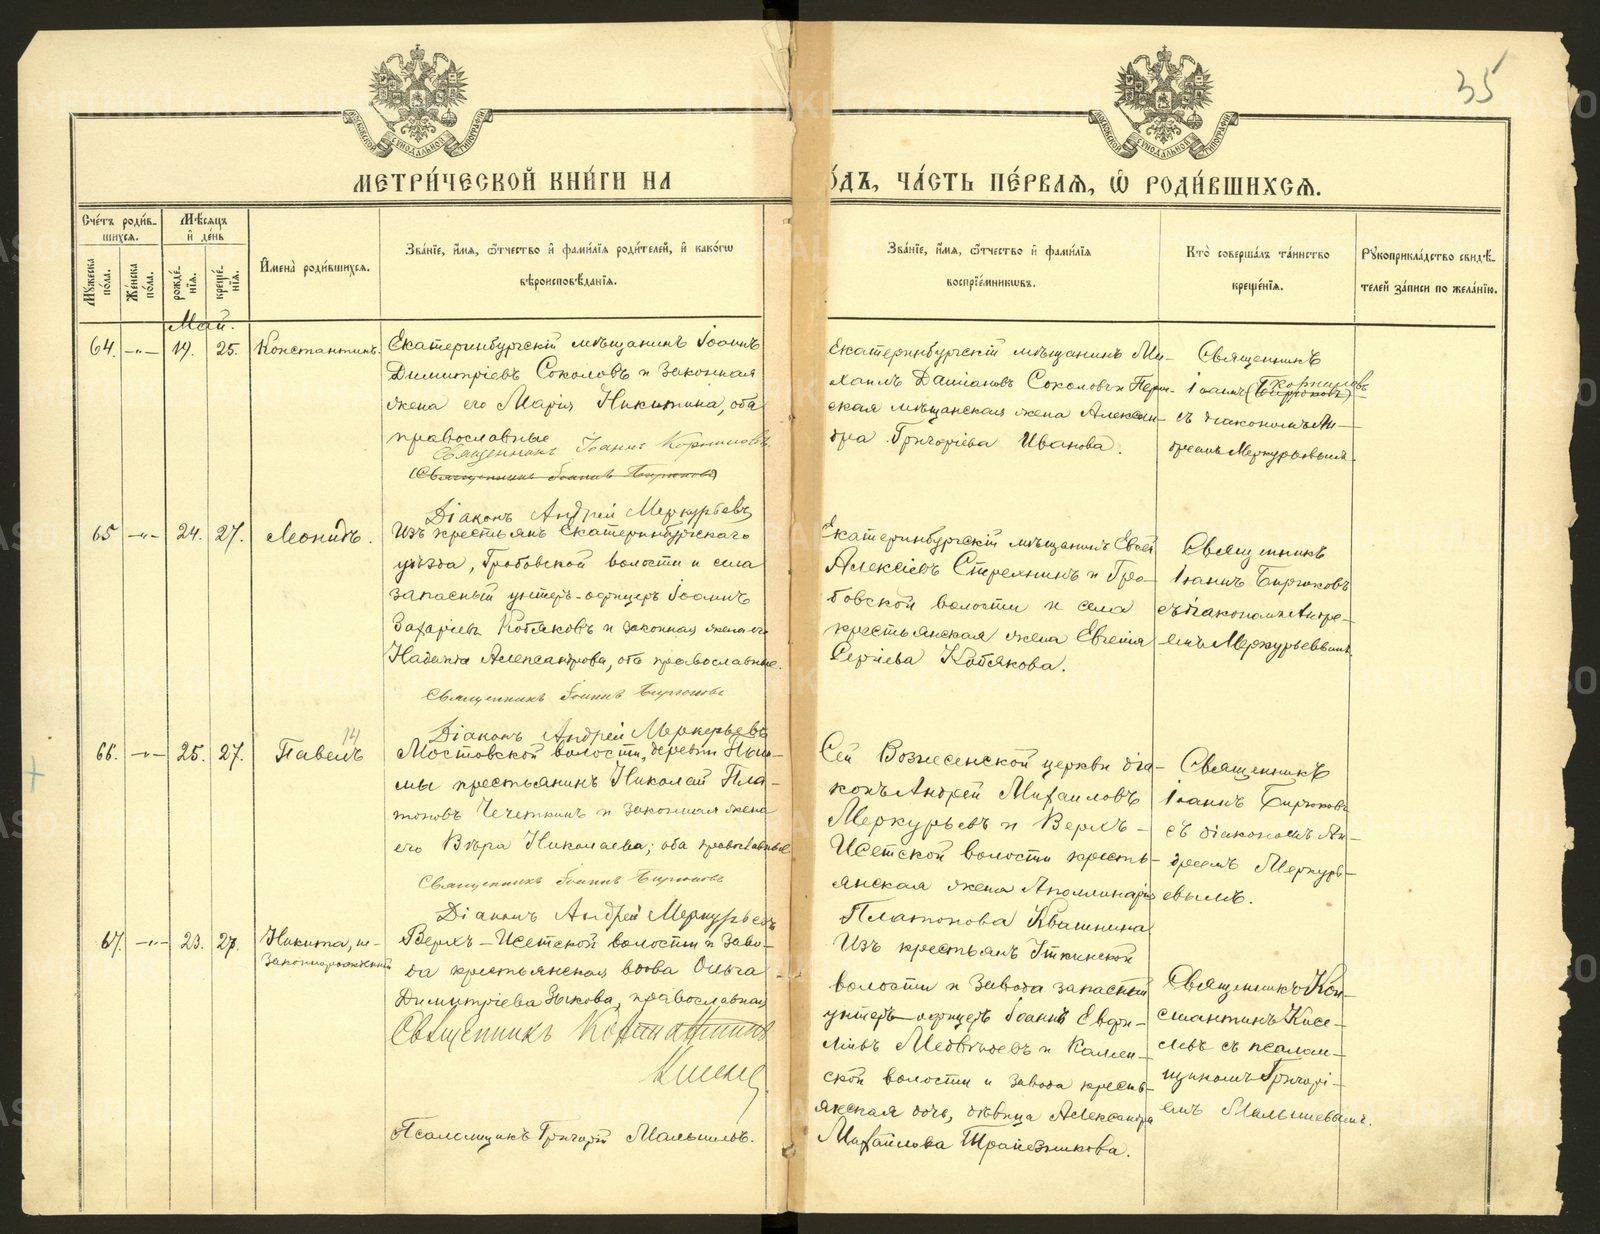 35
МЕТРИ́ЧЕСКОЙ КНИ́ГИ НА
О́ДЪ, ЧА́СТЬ ПЕ́РВАѦ, Ѡ҆ РОДИ́ВШИХСѦ.
Сче́тъ роди́в-
шихсѧ.
Мꙋ́жеска по́ла.
Же́нска по́ла.
Мѣ́сѧцъ
и҆ де́нь
рожде́-
нїѧ.
креще́-
нїѧ.
И҆мена̀ роди́вшихсѧ.
Зва́нїе, и҆́мѧ, ѻ҆́тчество и҆ фами́лїѧ роди́телей, и҆ како́гѡ
вѣроисповѣ́данїѧ.
Зва́нїе, и҆́мѧ, ѻ҆́тчество и҆ фами́лїѧ
воспрїе́мникѡвъ.
Кто̀ соверша́лъ та́инство
креще́нїѧ.
Рꙋкоприкла́дство свидѣ́-
телей за́писи по жела́нїю.
Май.
64. -"- 19. 25. Константинъ.
Екатеринбургскій мѣщанинъ Іоаннъ
Димитріевъ Соколовъ и законная
жена его Марія Никитина, оба
православные
Священникъ Іоаннъ Корниловъ
(Священникъ Іоаннъ Бирюковъ)
Діаконъ Андрей Меркурьевъ
Екатеринбургскій мѣщанинъ Ми-
хаилъ Даміановъ Соколовъ и Перм-
ская мѣщанская жена Алексан-
дра Григоріева Иванова.
Священникъ
Корниловъ
Іоаннъ (Бирюковъ)
съ діакономъ Ан-
дреемъ Меркурьевымъ.
65 -"- 24. 27. Леонидъ.
Изъ крестьянъ Екатеринбургскаго
уѣзда, Гробовской волости и села
запасный унтеръ-офицеръ Іоаннъ
Захаріевъ Кобяковъ и законная жена его
Наталія Александрова, оба православные.
Священникъ Іоаннъ Бирюковъ
Діаконъ Андрей Меркурьевъ
Екатеринбургскій мѣщанинъ Евсей
Алексіевъ Стрелкинъ и Гро-
бовской волости и села
крестьянская жена Евгенія
Сергіева Кобякова.
Священникъ
Іоаннъ Бирюковъ
съ діакономъ Андре-
емъ Меркурьевымъ.
14
66. -"- 25. 27. Павелъ
Мостовской волости, деревни
мы крестьянинъ Николай Пла-
тоновъ Чечеткинъ и законная жена
его Вѣра Николаева; оба православные
Священникъ Іоаннъ Бирюковъ
Діаконъ Андрей Меркурьевъ
Сей Вознесенской церкви діа-
конъ Андрей Михаиловъ
Меркурьевъ и Верхъ-
Исетской волости кресть-
янская жена Аполлинарія
Платонова Квашнина
Священникъ
Іоаннъ Бирюковъ
съ діакономъ Ан-
дреемъ Меркурь-
евымъ.
67. -"- 23. 27. Никита, не-
законнорожденный
Верхъ-Исетской волости и заво-
да крестьянская вдова Ольга
Димитріева Зыкова, православная
Священникъ Константинъ
Киселевъ
Псаломщикъ Григорій Малышевъ.
Изъ крестьянъ Уткинской
волости и завода запасный
унтеръ-офицеръ Іоаннъ Евфи-
міевъ Медвѣдевъ и Камен-
ской волости и завода кресть-
янская дочь, дѣвица Александра
Михайлова Трапезникова.
Священникъ Кон-
стантинъ Кисе-
левъ съ псалом-
щикомъ Григорі-
емъ Малышевымъ.